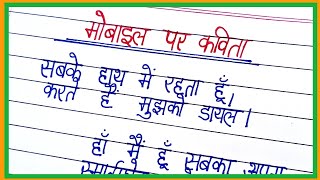 मोबाइल पर कविता
सबके हाथ में रहता हूँ।
करते हैं मुझको डायल।
हाँ मैं हूँ सबका